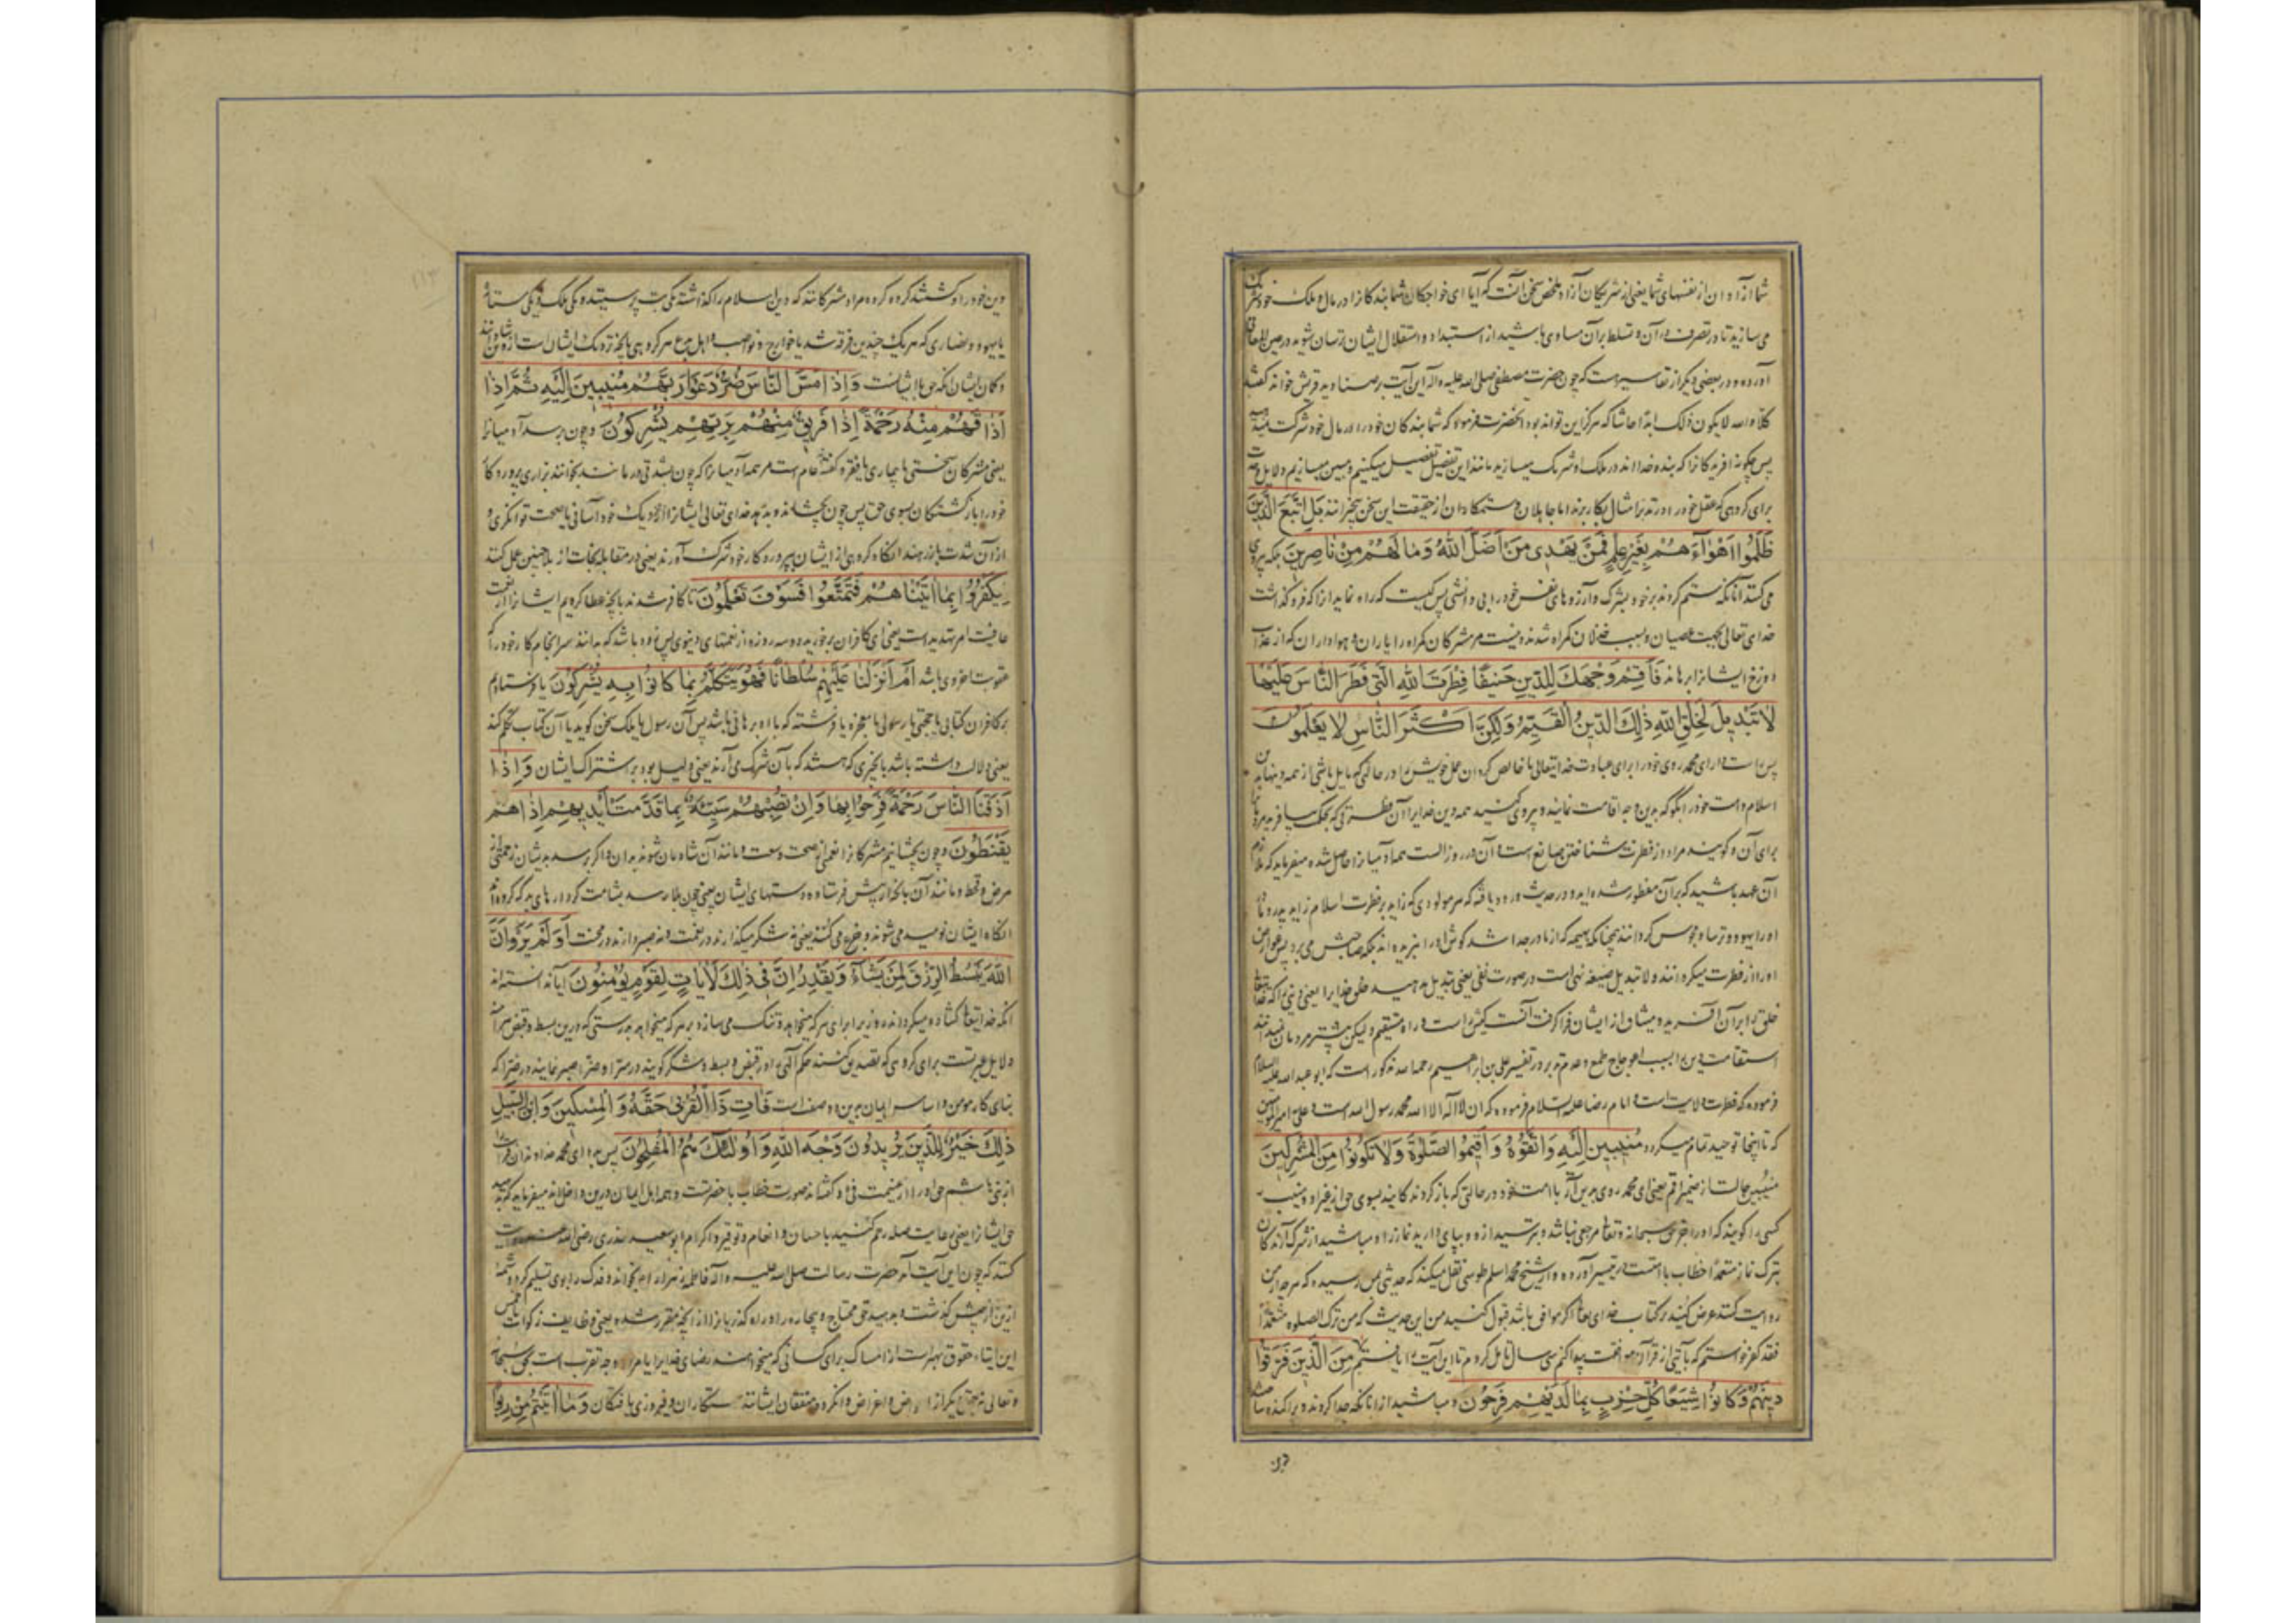 شما از آزادان از نفسهای شما یعنی از شریکان آزاد ملخص سخن آنست که آیا ای خواجکان شما بندکانرا در مال و ملک خود شریک
می سازید تا در تصرف در آن و تسلط بر آن مساوی باشید از استبداد و استقلال ایشان ترسان شوید در عین المعانی
آورده و در بعضی دیگر از تفاسیر است که چون حضرت مصطفی صلی الله علیه و آله این آیت بر صنادید قریش خواند گفتند
کلا و الله لا یکون ذلک ابدا حاشا که هرگز این تواند بود آنحضرت فرمود که شما بندکان خود را در مال خود شرکت نمیدهید
پس چگونه آفریدکانرا که بنده خدااند در ملک او شریک میسازید مانند این تفصیل تفصیل میکنیم و مبین میسازیم دلایل وحدت
برای گروهی که عقل خود را در تدبر امثال بکار برند اما جاهلان و ستمکاران از حقیقت این سخن بیخبرانند بَلِ اتَّبَعَ الَّذِینَ
ظَلَمُوا اَهْوَآءَهُمْ بِغَیْرِ عِلْمٍ فَمَنْ یَهْدِی مَنْ اَضَلَّ اللهُ وَمَا لَهُمْ مِنْ نَاصِرِینَ بلکه پیروی
می کنند آنانکه ستم کردند بر خود بشرک و آرزوهای نفس خود را بی دانشی پس کیست که راه نماید آنرا که فرو گذاشت
خدای تعالی بجهت عصیان و بسبب خذلان گمراه شدند و نیست مر مشرکان گمراه را یاران و هواداران که از عذاب
دوزخ ایشانرا برهانند فَاَقِمْ وَجْهَكَ لِلدِّینِ حَنِیفًا فِطْرَتَ اللهِ الَّتِی فَطَرَ النَّاسَ عَلَیْهَا
لَا تَبْدِیلَ لِخَلْقِ اللهِ ذٰلِكَ الدِّینُ الْقَیِّمُ وَلٰكِنَّ اَكْثَرَ النَّاسِ لَا یَعْلَمُونَ
پس راست دار ای محمد روی خود را برای عبادت خدایتعالی یا خالص گردان عمل خویش را در حالتی که مایل باشی از همه دینها بدین
اسلام و امت خود را بگو که بدین وجه اقامت نمایند و پیروی کنید همه دین خدایرا آن فطرتی که بیافرید مردمانرا
برای آن و گویند مراد از فطرت شناختن صانع است و آن در روز الست همه آدمیانرا حاصل شده میفرماید که ملازم
آن عهد باشید که بر آن مفطور شده اید و در حدیث ورود یافته که هر مولودی که زاید بر فطرت اسلام زاید پدر و مادر
او را یهود و ترسا و مجوس گردانند چنانکه بهیمه که از مادر جدا شد گوش او را نبریده اند بلکه صاحبش می برد
او را از فطرت میگردانند و لا تبدیل صیغه نهی است در صورت نفی یعنی تبدیل مدهید خلق خدایرا یعنی دینی را که خدایتعالی
خلق را بر آن آفریده و میثاق از ایشان فرا گرفت آنست کیش راست و راه مستقیم و لیکن بیشتر مردمان نمیدانند
استقامت دین را بسبب اعوجاج طبع و عدم تدبر در تفسیر علی بن ابراهیم رحمه الله مذکور است که ابو عبد الله علیه السلام
فرموده که فطرت ولایت است و امام رضا علیه السلام فرموده که ان لا اله الا الله محمد رسول الله است و علی امیر المؤمنین
که تا اینجا توحید تمام میگردد مُنِیبِینَ اِلَیْهِ وَاتَّقُوهُ وَاَقِیمُوا الصَّلٰوةَ وَلَا تَكُونُوا مِنَ الْمُشْرِكِینَ
منیبین حالست از ضمیر اقم یعنی ای محمد روی بدین آر با امت خود در حالتی که باز گردندکانید بسوی حق از غیر او و منیب
کسی را گویند که او را جز حق سبحانه و تعالی مرجعی نباشد و بترسید از او و بپای دارید نماز را و مباشید از شرک آرندکان
بترک نماز متعمدا خطاب با امتست در تیسیر آورده و از شیخ محمد اسلم طوسی نقل میکند که حدیثی بمن رسیده که هر چه از من
روایت کنند عرض کنید بر کتاب خدای تعالی اگر موافق باشد قبول کنید من این حدیث که من ترک الصلوة متعمدا
فقد کفر خواستم که بآیتی از قرآن موافقت پیدا کنم سی سال تامل کردم تا این آیت را یافتم مِنَ الَّذِینَ فَرَّقُوا
دِینَهُمْ وَكَانُوا شِیَعًا كُلُّ حِزْبٍ بِمَا لَدَیْهِمْ فَرِحُونَ و مباشید از آنانکه جدا کردند و پراکنده ساختند
دین
دین خود را و گشتند گروه گروه مراد مشرکانند که دین اسلام را گذاشته یکی بت پرستیده یکی ملک و یکی ستاره
یا یهود و نصاری که هر یک چندین فرقه شد یا خوارج و نواصب و اهل بدع هر گروهی بآنچه نزدیک ایشان است شادمانند
و گمان ایشان آنکه حق با ایشانست وَاِذَا مَسَّ النَّاسَ ضُرٌّ دَعَوْا رَبَّهُمْ مُنِیبِینَ اِلَیْهِ ثُمَّ اِذَا
اَذَاقَهُمْ مِنْهُ رَحْمَةً اِذَا فَرِیقٌ مِنْهُمْ بِرَبِّهِمْ یُشْرِكُونَ و چون برسد آدمیانرا
یعنی مشرکان سختی یا بیماری یا فقر و گفته‌اند عام است مر همه آدمیانرا که چون بشدتی در مانند بخوانند بزاری پروردگار
خود را بازگشتگان بسوی حق پس چون بچشاند و بدهد خدای تعالی ایشانرا از نزدیک خود آسانی یا صحت توانگری و
از آن شدت باز رهند آنگاه گروهی از ایشان بپروردگار خود شرک آورند یعنی در مقابله نجات از بلا چنین عمل کنند
لِیَكْفُرُوا بِمَا اٰتَیْنَاهُمْ فَتَمَتَّعُوا فَسَوْفَ تَعْلَمُونَ تا کافر شدند بآنچه عطا کردیم ایشانرا از نعمت
عافیت امر تهدید است یعنی ای کافران برخورید دو سه روزه از نعمتهای دنیوی پس زود باشد که بدانند سرانجام کار خود را که
عقوبت اخروی باشد اَمْ اَنْزَلْنَا عَلَیْهِمْ سُلْطَانًا فَهُوَ یَتَكَلَّمُ بِمَا كَانُوا بِهِ یُشْرِكُونَ یا فرستادیم
بر کافران کتابی یا حجتی یا رسولی با معجزه یا فرشته که با او برهانی باشد پس آن رسول یا ملک سخن گوید یا آن کتاب تکلم کند
یعنی دلالت داشته باشد بچیزی که هستند که بآن شرک می آرند یعنی دلیل بود بر اشتراک ایشان وَاِذَا
اَذَقْنَا النَّاسَ رَحْمَةً فَرِحُوا بِهَا وَاِنْ تُصِبْهُمْ سَیِّئَةٌ بِمَا قَدَّمَتْ اَیْدِیهِمْ اِذَا هُمْ
یَقْنَطُونَ و چون بچشانیم مشرکانرا نعمتی از صحت و سعت و مانند آن شادمان شوند بدان و اگر برسد بدیشان زحمتی از
مرض و قحط و مانند آن بآنچه از پیش فرستاده دستهای ایشان یعنی چون بلا رسد بشامت کردارهای بد که کرده‌اند
آنگاه ایشان نومید می شوند و جزع می کنند یعنی نه شکر میگذارند در نعمت و نه صبر دارند در محنت اَوَلَمْ یَرَوْا اَنَّ
اللهَ یَبْسُطُ الرِّزْقَ لِمَنْ یَشَآءُ وَیَقْدِرُ اِنَّ فِی ذٰلِكَ لَاٰیَاتٍ لِقَوْمٍ یُؤْمِنُونَ آیا ندانسته اند
آنکه خدایتعالی گشاده میگرداند روزی را برای هر که میخواهد و تنگ می سازد بر هر که میخواهد بدرستی که درین بسط و قبض هر آینه
دلایل عبرتست برای گروهی که تصدیق کنند حکم الهی را در قبض و بسط و شکر گویند در سرا و صبر نمایند در ضرا که
بنای کار مومن و اساس ایمان برین دو صفت است فَاٰتِ ذَا الْقُرْبٰی حَقَّهُ وَالْمِسْكِینَ وَابْنَ السَّبِیلِ
ذٰلِكَ خَیْرٌ لِلَّذِینَ یُرِیدُونَ وَجْهَ اللهِ وَاُولٰئِكَ هُمُ الْمُفْلِحُونَ پس بده ای محمد خداوندان قرابت را
از بنی هاشم حق او را از غنیمت و فئ و گفته‌اند صورت خطاب با حضرتست و همه اهل ایمان درین داخل‌اند میفرماید که بدهید
حق ایشانرا یعنی رعایت صله رحم کنید باحسان و انعام و توقیر و اکرام ابو سعید خدری رضی الله عنه روایت
کند که چون این آیت آمد حضرت رسالت صلی الله علیه و آله فاطمه زهرا را بخواند و فدک را بوی تسلیم کرد
ازین پیش گذشت و بدهید حق محتاج و بیچاره را و راه گذریانرا از آنچه مقرر شده یعنی وظایف زکوات یا خمس
این ایتاء حقوق بهتر است از امساک برای کسانی که میخواهند رضای خدایرا یا مراد وجه تقرب است بحق سبحانه
و تعالی نه جهتی دیگر از اعراض و اغراض و آنگروه منفقان ایشانند رستگاران و فیروزی یافتگان وَمَا اٰتَیْتُمْ مِنْ رِبًا